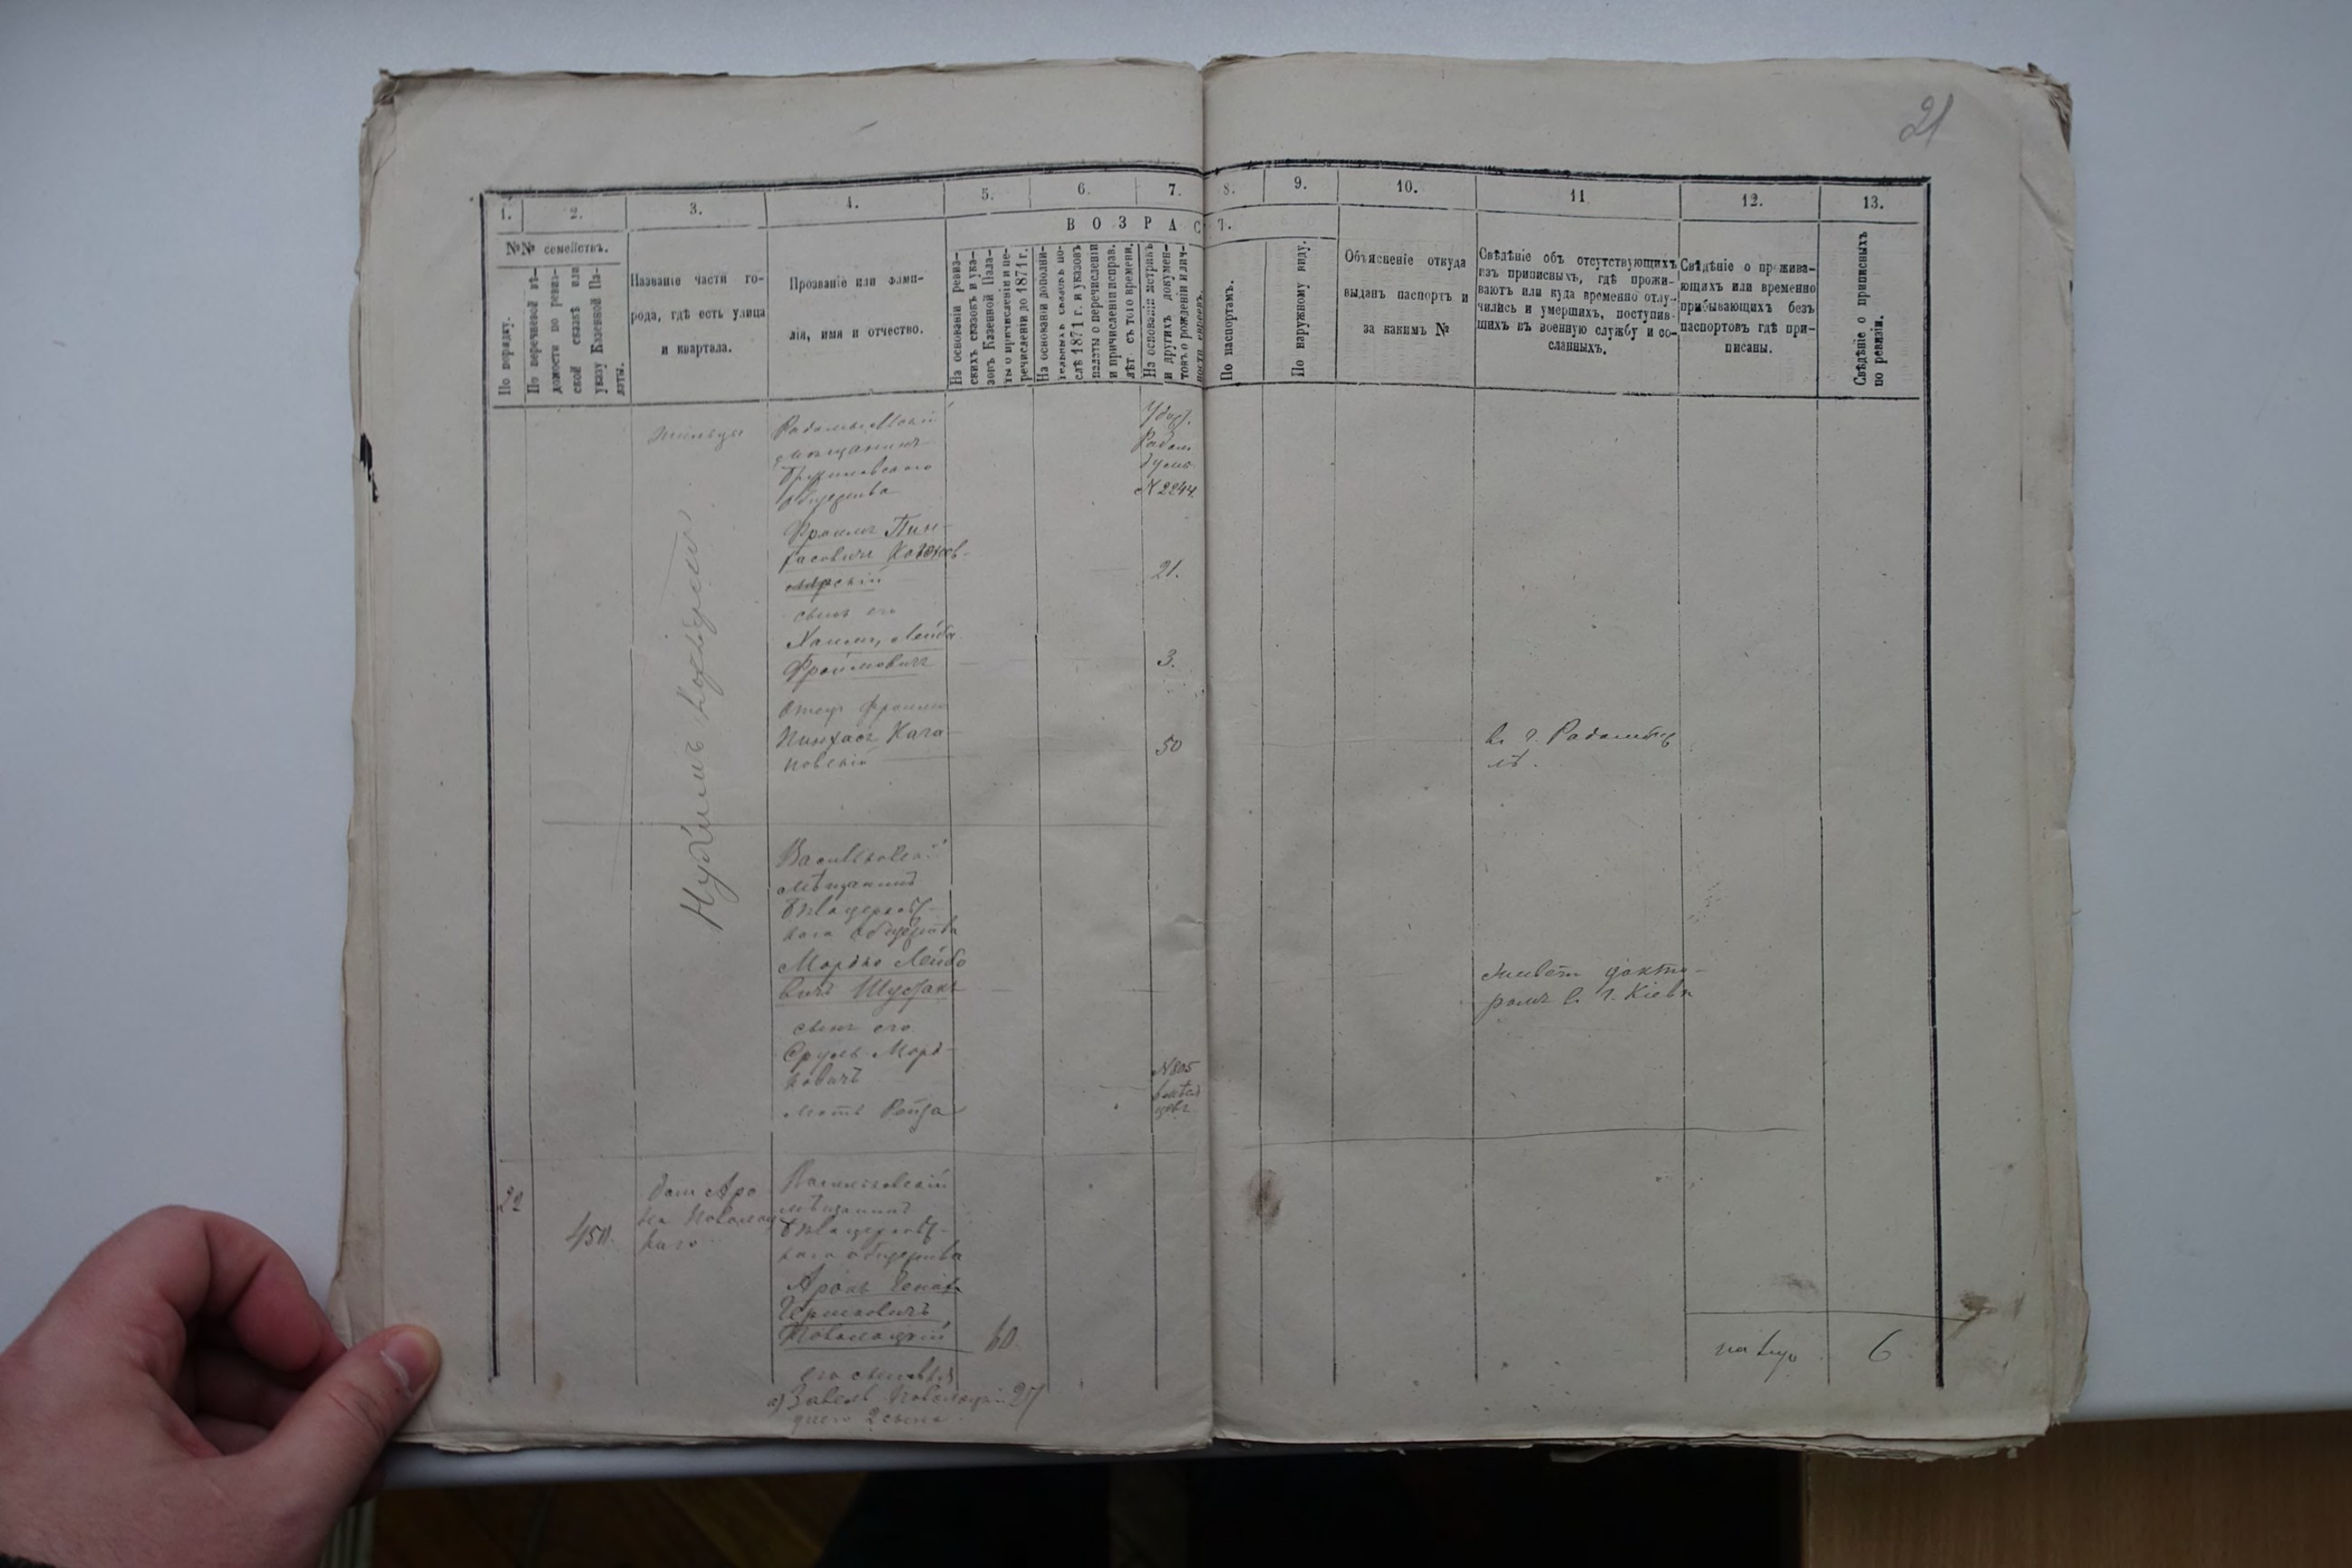 21
1. 2. 3. 4. 5. 6. 7. 8. 9. 10. 11 12. 13.
ВОЗРАСТ.
№№ семействъ.
По порядку.
По перечневой вѣ-
домости по ревиз-
ской сказкѣ или
указу Казенной Па-
латы.
Названіе части го-
рода, гдѣ есть улица
и квартала.
Прозваніе или фами-
лія, имя и отчество.
На основаніи ревиз-
скихъ сказокъ и ука-
зовъ Казенной Пала-
ты о причисленіи и пе-
речисленіи до 1871 г.
На основаніи дополни-
тельныхъ сказокъ по-
слѣ 1871 г. и указовъ
палаты о перечисленіи
и причисленіи исправ.
лѣт съ того времени.
На основаніи метрикъ
и другихъ докумен-
товъ о рожденіи и лич-
ности евреевъ.
По паспортамъ.
По наружному виду.
Объясненіе откуда
выданъ паспортъ и
за какимъ №
Свѣдѣніе объ отсутствующихъ
изъ приписныхъ, гдѣ прожи-
ваютъ или куда временно отлу-
чились и умершихъ, поступив-
шихъ въ военную службу и со-
сланныхъ.
Свѣдѣніе о прожива-
ющихъ или временно
прибывающихъ безъ
паспортовъ гдѣ при-
писаны.
Свѣдѣніе о приписныхъ
по ревизіи.
Жильцы
мѣщанинъ
Брусиловского
общества
Радом
думы
№ 2244.
Фроимъ Пин-
хасовичъ
21.
сынъ его
Хаимъ, Лейба
Фроимовичъ
3.
отецъ Фроима
Пинхасъ Кага-
новскій
50
въ г. Радомыс
лѣ.
Васильковскій
мѣщанинъ
Бѣлоцерков-
каго общества
Мордко Лейбо
вичъ
живетъ докто-
ромъ въ г. Кіевѣ
сынъ его
Сруль Морд-
ковичъ
№ 805
мать
22
450.
домъ Аро
на Поволоц
каго
Васильковскій
мѣщанинъ
Бѣлоцерков-
каго общества
Аронъ
Гершковичъ
Поволоцкій
60
его сыновья
а) Завель Поволоцкій 27
у него 2 сына
6